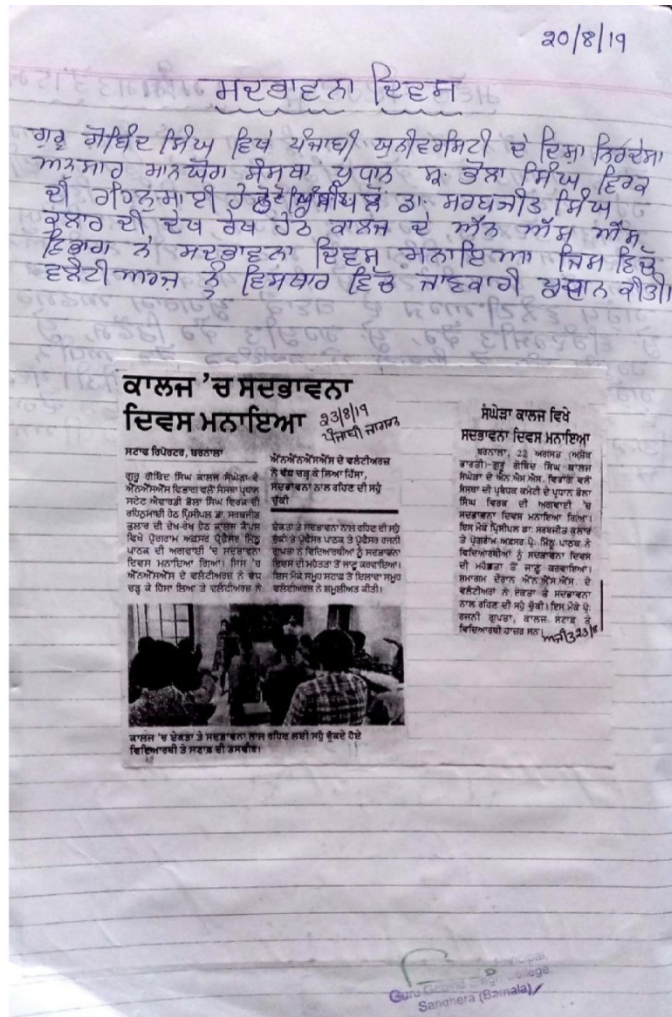 20/8/19
ਸਦਭਾਵਨਾ ਦਿਵਸ
ਗੁਰੂ ਗੋਬਿੰਦ ਸਿੰਘ ਵਿਖੇ ਪੰਜਾਬੀ ਯੂਨੀਵਰਸਿਟੀ ਦੇ ਦਿਸ਼ਾ ਨਿਰਦੇਸ਼ਾ
ਅਨੁਸਾਰ ਮਾਨਯੋਗ ਸੰਸਥਾ ਪ੍ਰਧਾਨ ਸ. ਭੋਲਾ ਸਿੰਘ ਵਿਰਕ
ਦੀ ਰਹਿਨੁਮਾਈ ਹੇਠ ਡਾ. ਸਰਬਜੀਤ ਸਿੰਘ
ਕੁਲਾਰ ਦੀ ਦੇਖ ਰੇਖ ਹੇਠ ਕਾਲਜ ਦੇ ਐੱਨ ਐੱਸ ਐੱਸ
ਵਿਭਾਗ ਨੇ ਸਦਭਾਵਨਾ ਦਿਵਸ ਮਨਾਇਆ ਜਿਸ ਵਿੱਚ
ਵਲੰਟੀਅਰਜ ਨੂੰ ਵਿਸਥਾਰ ਵਿੱਚ ਜਾਣਕਾਰੀ ਪ੍ਰਦਾਨ ਕੀਤੀ।
ਕਾਲਜ 'ਚ ਸਦਭਾਵਨਾ
ਦਿਵਸ ਮਨਾਇਆ
23/8/19
ਪੰਜਾਬੀ ਜਾਗਰਨ
ਸਟਾਫ ਰਿਪੋਰਟਰ, ਬਰਨਾਲਾ
ਗੁਰੂ ਗੋਬਿੰਦ ਸਿੰਘ ਕਾਲਜ ਸੰਘੇੜਾ ਦੇ
ਐੱਨਐੱਸਐੱਸ ਵਿਭਾਗ ਵਲੋਂ ਸੰਸਥਾ ਪ੍ਰਧਾਨ
ਸਟੇਟ ਐਵਾਰਡੀ ਭੋਲਾ ਸਿੰਘ ਵਿਰਕ ਦੀ
ਰਹਿਨੁਮਾਈ ਹੇਠ ਪ੍ਰਿੰਸੀਪਲ ਡਾ. ਸਰਬਜੀਤ
ਕੁਲਾਰ ਦੀ ਦੇਖ-ਰੇਖ ਹੇਠ ਕਾਲਜ ਕੈਂਪਸ
ਵਿਖੇ ਪ੍ਰੋਗਰਾਮ ਅਫ਼ਸਰ ਪ੍ਰੋਫੈਸਰ ਮਿੱਠੂ
ਪਾਠਕ ਦੀ ਅਗਵਾਈ 'ਚ ਸਦਭਾਵਨਾ
ਦਿਵਸ ਮਨਾਇਆ ਗਿਆ। ਜਿਸ 'ਚ
ਐੱਨਐੱਸਐੱਸ ਦੇ ਵਲੰਟੀਅਰਜ਼ ਨੇ ਵੱਧ
ਚੜ੍ਹ ਕੇ ਹਿੱਸਾ ਲਿਆ ਤੇ ਵਲੰਟੀਅਰਜ਼ ਨੇ
ਐੱਨਐੱਸਐੱਸ ਦੇ ਵਲੰਟੀਅਰਜ਼
ਨੇ ਵੱਧ ਚੜ੍ਹ ਕੇ ਲਿਆ ਹਿੱਸਾ,
ਸਦਭਾਵਨਾ ਨਾਲ ਰਹਿਣ ਦੀ ਸਹੁੰ
ਚੁੱਕੀ
ਏਕਤਾ ਤੇ ਸਦਭਾਵਨਾ ਨਾਲ ਰਹਿਣ ਦੀ ਸਹੁੰ
ਚੁੱਕੀ ਤੇ ਪ੍ਰੋਫੈਸਰ ਪਾਠਕ ਤੇ ਪ੍ਰੋਫੈਸਰ ਰਜਨੀ
ਗੁਪਤਾ ਨੇ ਵਿਦਿਆਰਥੀਆਂ ਨੂੰ ਸਦਭਾਵਨਾ
ਦਿਵਸ ਦੀ ਮਹੱਤਤਾ ਤੋਂ ਜਾਣੂ ਕਰਵਾਇਆ।
ਇਸ ਮੌਕੇ ਸਮੂਹ ਸਟਾਫ ਤੋਂ ਇਲਾਵਾ ਸਮੂਹ
ਵਲੰਟੀਅਰਜ਼ ਨੇ ਸ਼ਮੂਲੀਅਤ ਕੀਤੀ।
ਕਾਲਜ 'ਚ ਏਕਤਾ ਤੇ ਸਦਭਾਵਨਾ ਨਾਲ ਰਹਿਣ ਲਈ ਸਹੁੰ ਚੁੱਕਦੇ ਹੋਏ
ਵਿਦਿਆਰਥੀ ਤੇ ਸਟਾਫ਼ ਦੀ ਤਸਵੀਰ।
ਸੰਘੇੜਾ ਕਾਲਜ ਵਿਖੇ
ਸਦਭਾਵਨਾ ਦਿਵਸ ਮਨਾਇਆ
ਬਰਨਾਲਾ, 22 ਅਗਸਤ (ਅਸ਼ੋਕ
ਭਾਰਤੀ)-ਗੁਰੂ ਗੋਬਿੰਦ ਸਿੰਘ ਕਾਲਜ
ਸੰਘੇੜਾ ਦੇ ਐਨ.ਐਸ.ਐਸ. ਵਿਭਾਗ ਵਲੋਂ
ਸੰਸਥਾ ਦੀ ਪ੍ਰਬੰਧਕ ਕਮੇਟੀ ਦੇ ਪ੍ਰਧਾਨ ਭੋਲਾ
ਸਿੰਘ ਵਿਰਕ ਦੀ ਅਗਵਾਈ 'ਚ
ਸਦਭਾਵਨਾ ਦਿਵਸ ਮਨਾਇਆ ਗਿਆ।
ਇਸ ਮੌਕੇ ਪ੍ਰਿੰਸੀਪਲ ਡਾ: ਸਰਬਜੀਤ ਕੁਲਾਰ
ਤੇ ਪ੍ਰੋਗਰਾਮ ਅਫ਼ਸਰ ਪ੍ਰੋ: ਮਿੱਠੂ ਪਾਠਕ ਨੇ
ਵਿਦਿਆਰਥੀਆਂ ਨੂੰ ਸਦਭਾਵਨਾ ਦਿਵਸ
ਦੀ ਮਹੱਤਤਾ ਤੋਂ ਜਾਣੂ ਕਰਵਾਇਆ।
ਸਮਾਗਮ ਦੌਰਾਨ ਐਨ.ਐਸ.ਐਸ. ਦੇ
ਵਲੰਟੀਅਰਾਂ ਨੇ ਏਕਤਾ ਤੇ ਸਦਭਾਵਨਾ
ਨਾਲ ਰਹਿਣ ਦੀ ਸਹੁੰ ਚੁੱਕੀ। ਇਸ ਮੌਕੇ ਪ੍ਰੋ:
ਰਜਨੀ ਗੁਪਤਾ, ਕਾਲਜ ਸਟਾਫ਼ ਤੇ
ਵਿਦਿਆਰਥੀ ਹਾਜ਼ਰ ਸਨ।
ਅਜੀਤ 23/8
Principal
Guru Gobind Singh College
Sanghera (Barnala)